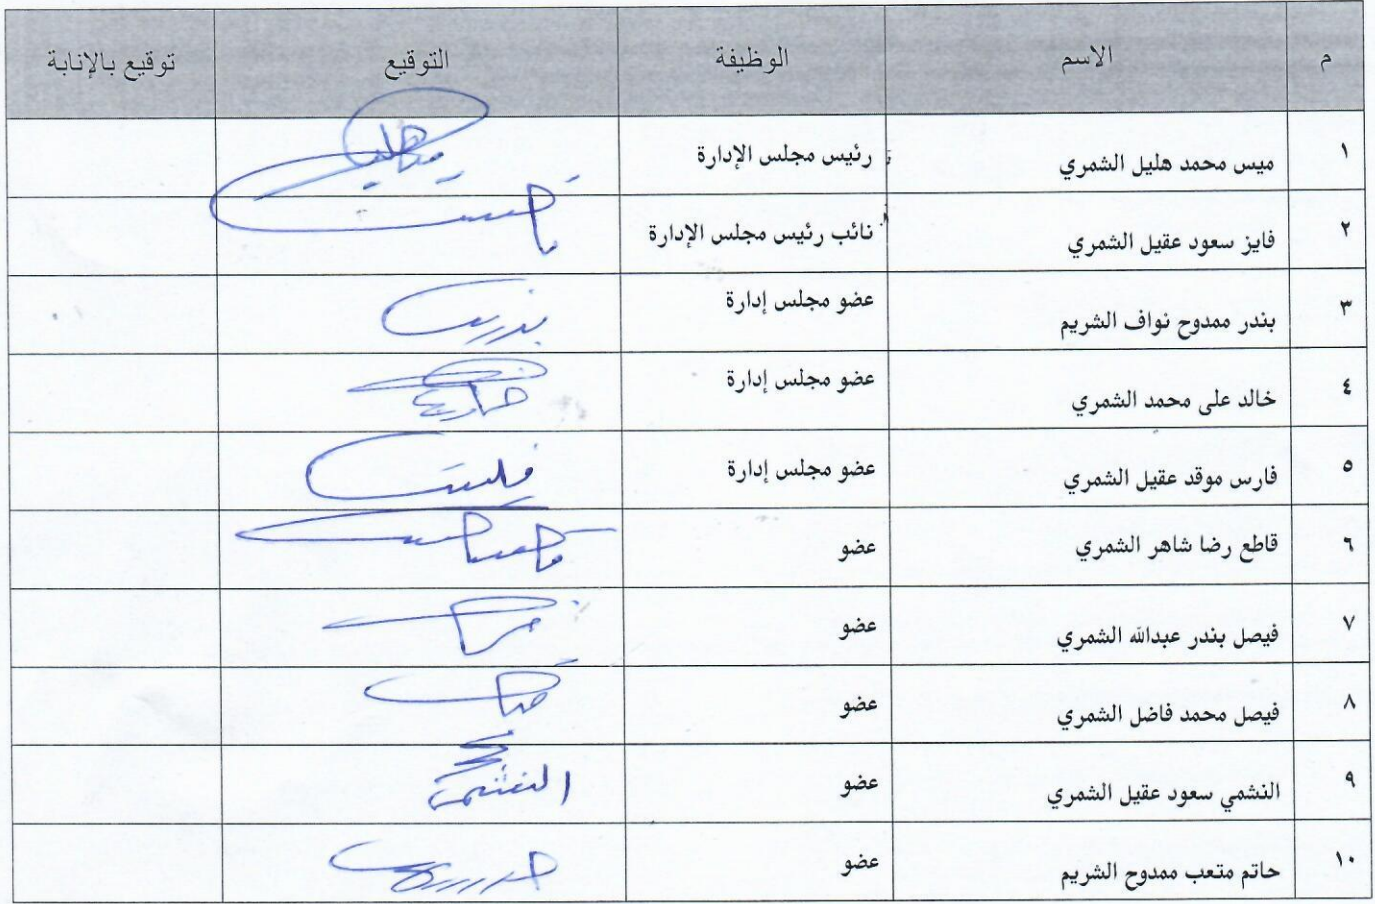 م الاسم الوظيفة التوقيع توقيع بالإنابة
١ ميس محمد هليل الشمري رئيس مجلس الإدارة
٢ فايز سعود عقيل الشمري نائب رئيس مجلس الإدارة
٣ بندر ممدوح نواف الشريم عضو مجلس إدارة
٤ خالد على محمد الشمري عضو مجلس إدارة
٥ فارس موقد عقيل الشمري عضو مجلس إدارة
٦ قاطع رضا شاهر الشمري عضو
٧ فيصل بندر عبدالله الشمري عضو
٨ فيصل محمد فاضل الشمري عضو
٩ النشمي سعود عقيل الشمري عضو النشمي
١٠ حاتم متعب ممدوح الشريم عضو